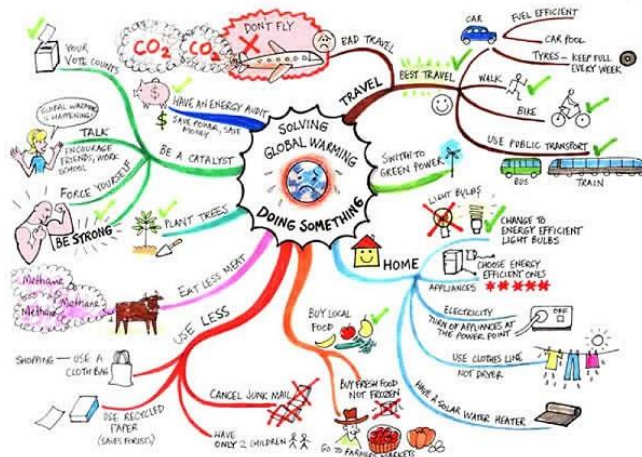 SOLVING
GLOBAL WARMING
DOING SOMETHING
TRAVEL
BAD TRAVEL
DON'T FLY
CO2
CO2
BEST TRAVEL
CAR
FUEL EFFICIENT
CAR POOL
TYRES - KEEP FULL
EVERY WEEK
WALK
BIKE
USE PUBLIC TRANSPORT
BUS
TRAIN
SWITH TO
GREEN POWER
HOME
LIGHT BULBS
CHANGE TO
ENERGY EFFICIENT
LIGHT BULBS
APPLIANCES
CHOOSE ENERGY
EFFICIENT ONES
ELECTRICITY
TURN OF APPLIANCES AT
THE POWER POINT
OFF
USE CLOTHES LINE
NOT DRYER
HAVE A SOLAR WATER HEATER
BUY LOCAL
FOOD
BUY FRESH FOOD
NOT FROZEN
GO TO FARMERS MARKETS
USE LESS
SHOPPING — USE A
CLOTH BAG
USE RECYCLED
PAPER
(SAVES FORESTS)
CANCEL JUNK MAIL
HAVE
ONLY 2 CHILDREN
EAT LESS MEAT
Methane
Methane
Methane
PLANT TREES
BE A CATALYST
YOUR
VOTE COUNTS
TALK
ENCOURAGE
FRIENDS, WORK
SCHOOL
GLOBAL WARMING
IS HAPPENING!
FORCE YOURSELF
BE STRONG
HAVE AN ENERGY AUDIT
$ SAVE POWER, SAVE
MONEY